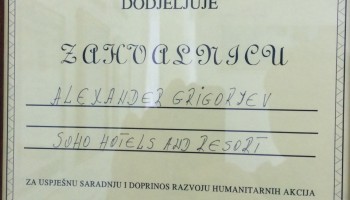 DODJELJUJE
ZAHVALNICU
ALEXANDER GRIGORYEV
SOHO HOTELS AND RESORT
ZA USPJEŠNU SARADNJU I DOPRINOS RAZVOJU HUMANITARNIH AKCIJA